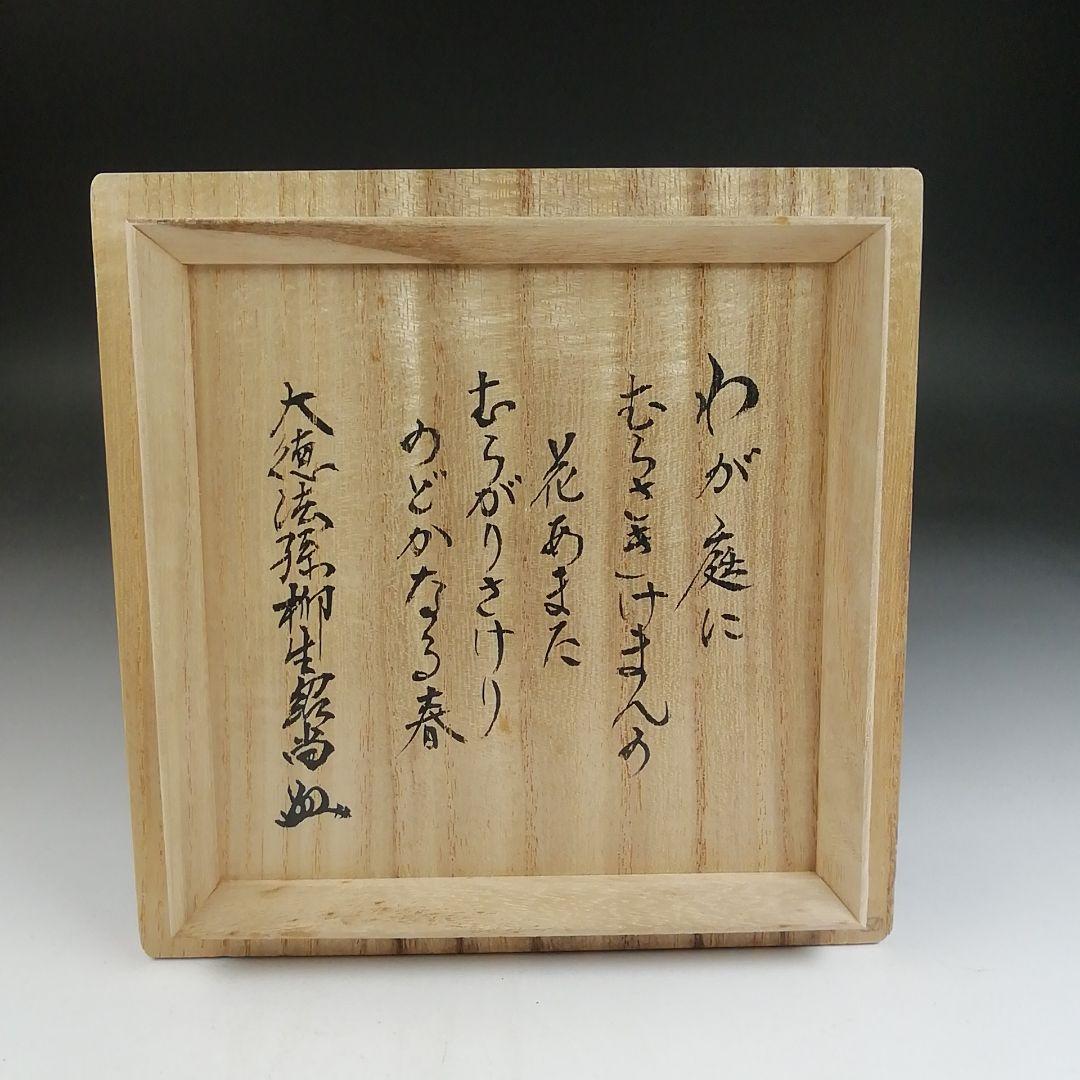 わが庭に
むらさきけまんの
花あまた
むらがりさけり
のどかなる春
大徳法孫柳生紹尚